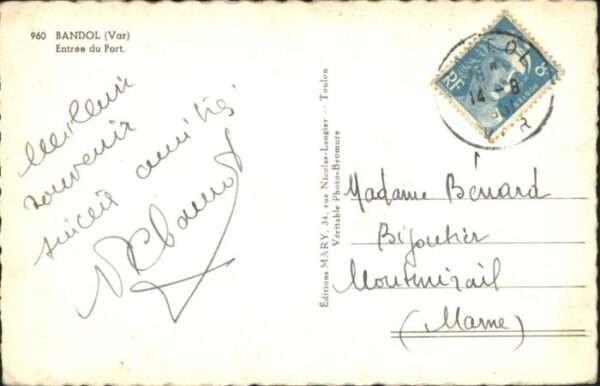 960 BANDOL (Var)
Entrée du Port.
Meilleur
souvenir
sincère amitié.
Editions MARY, 34, rue Nicolas-Laugier — Toulon
Véritable Photo-Bromure
RF
8F
14 - 8
VAR
Madame Bénard
Bijoutier
Montmirail
(Marne)